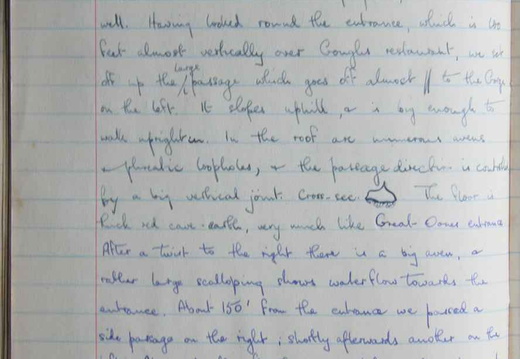 well. Having looked round the entrance, which is 100
feet almost vertically over Goughs restaurant, we set
off up the large passage which goes off almost || to the Gorge
on the left. It slopes uphill, & is big enough to
walk upright in. In the roof are numerous avens
& phreatic loopholes, & the passage direction is controlled
by a big vertical joint. Cross-sec. The floor is
thick red cave-earth, very much like Great Oones entrance
After a twist to the right there is a big aven, &
rather large scalloping shows waterflow towards the
entrance. About 150' from the entrance we passed a
side passage on the right; shortly afterwards another on the